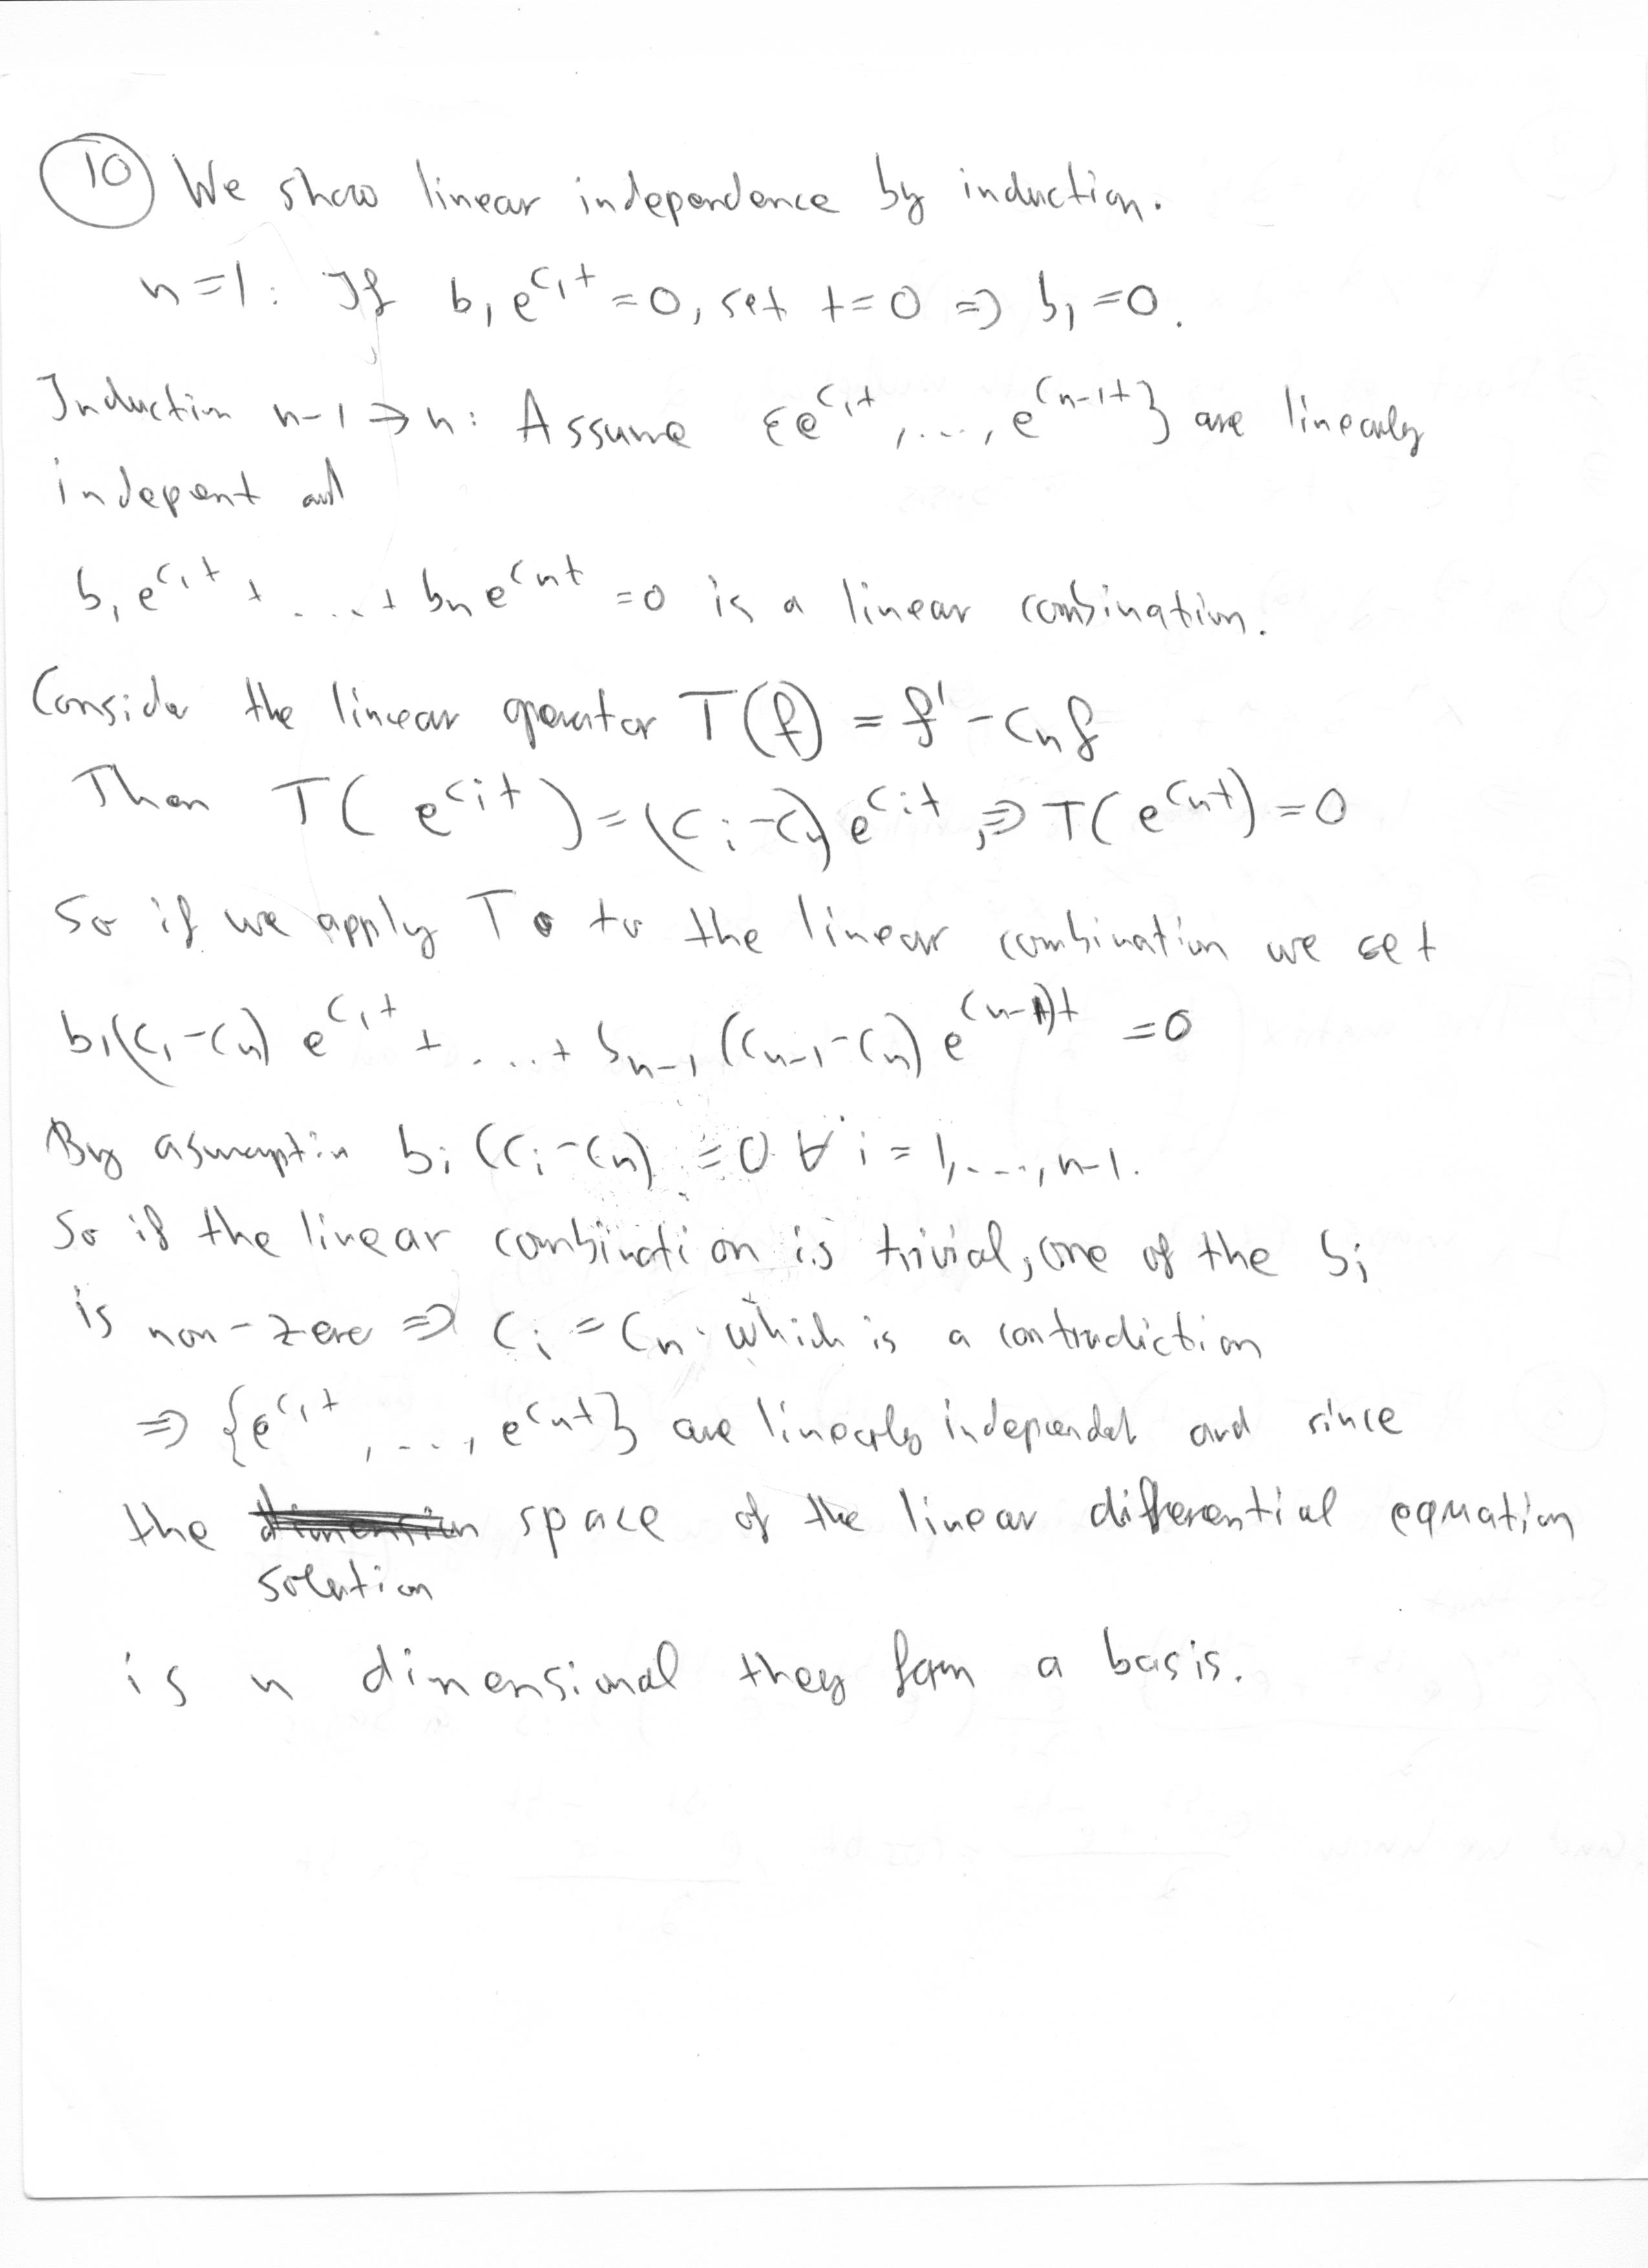 10 We show linear independence by induction.
n=1: If b₁e^{c₁t} = 0, set t=0 ⇒ b₁ = 0.
Induction n-1 → n: Assume {e^{c₁t}, ..., e^{c_{n-1}t}} are linearly
indepent and
b₁e^{c₁t} + ... + bₙe^{cₙt} = 0 is a linear combination.
Consider the linear operator T(f) = f' - cₙf
Then T(e^{cᵢt}) = (cᵢ - cₙ)e^{cᵢt}, ⇒ T(e^{cₙt}) = 0
So if we apply T to the linear combination we get
b₁(c₁-cₙ) e^{c₁t} + ... + b_{n-1}(c_{n-1}-cₙ) e^{c_{n-1}t} = 0
By asumption bᵢ(cᵢ-cₙ) = 0 ∀ i = 1, ..., n-1.
So if the linear combination is trivial, one of the bᵢ
is non-zero ⇒ cᵢ = cₙ which is a contradiction
⇒ {e^{c₁t}, ..., e^{cₙt}} are linearly independet and since
the dimension space of the linear differential equation
solution
is n dimensional they form a basis.